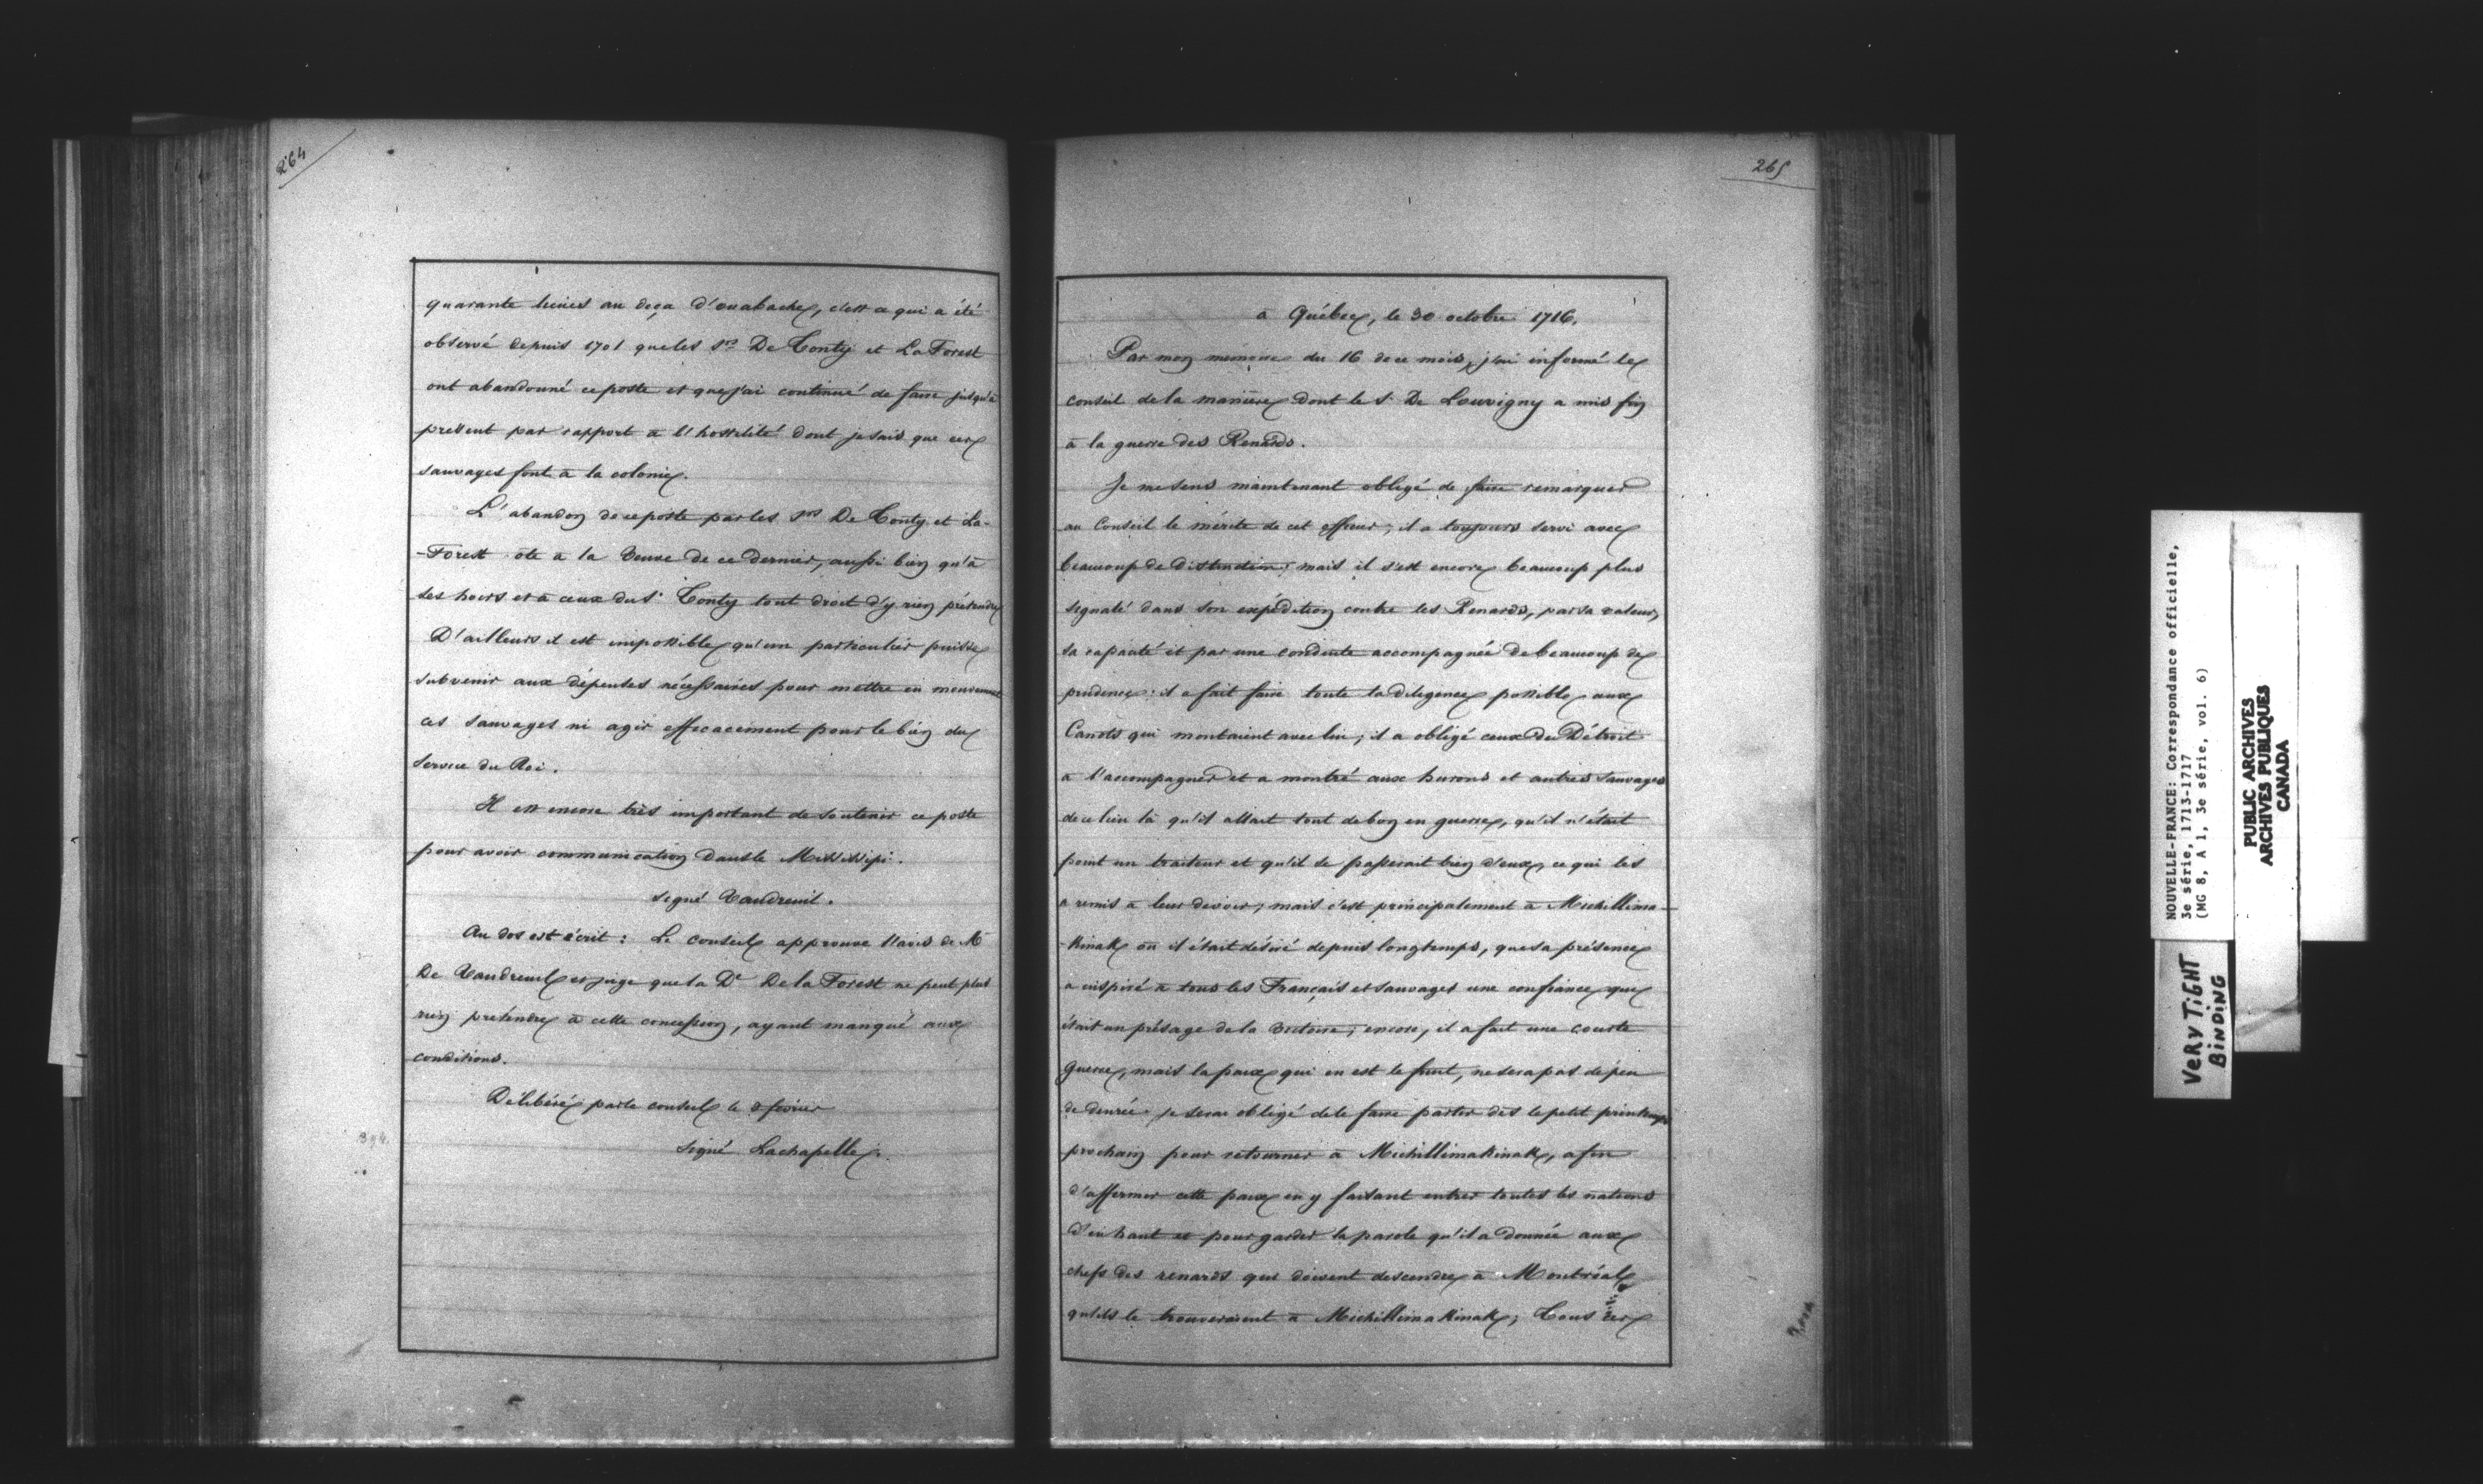 264
quarante lieues au deça d'ouabache, c'est ce qui a été
observé depuis 1701 que les Srs De Tonty et La Forest
ont abandonné ce poste et que j'ai continué de faire jusqu'à
present par rapport à l'hostilité dont je sais que ces
sauvages font à la colonie.
L'abandon de ce poste par les Srs De Tonty et La-
-Forest ôte a la Veuve de ce dernier, aussi bien qu'à
ses hoirs et à ceux du S. Tonty tout droit d'y rien prétendre
D'ailleurs il est impossible qu'un particulier puisse
subvenir aux dépenses nécessaires pour mettre en mouvement
ces sauvages ni agir efficacement pour le bien du
service du Roi.
Il est encore très important de soutenir ce poste
pour avoir communication dans le Mississipi.
signé Vaudreuil.
Au dos est écrit : Le conseil approuve l'avis de Mr
De Vaudreuil et juge que la De De la Forest ne peut plus
rien prétendre à cette concession, ayant manqué aux
conditions.
Délibéré par le conseil le 8 février
signé Lachapelle.
265
à Québec, le 30 octobre 1716.
Par mon memoire du 16 de ce mois, j'ai informé le
conseil de la manière dont le S. De Louvigny a mis fin
à la guerre des Renards.
Je me sens maintenant obligé de faire remarquer
au Conseil le mérite de cet officier ; il a toujours servi avec
beaucoup de distinction ; mais il s'est encore beaucoup plus
signalé dans son expédition contre les Renards, par sa valeur,
sa capacité et par une conduite accompagnée de beaucoup de
prudence : il a fait faire toute la diligence possible aux
Canots qui montaient avec lui ; il a obligé ceux du Détroit
à l'accompagner et a montré aux hurons et autres sauvages
de ce lieu là qu'il allait tout de bon en guerre, qu'il n'était
point un traiteur et qu'il se passerait bien d'eux, ce qui les
a remis à leur devoir ; mais c'est principalement à Michillima-
-Kinak où il était désiré depuis longtemps, que sa présence
a inspiré à tous les Français et sauvages une confiance que
était un présage de la victoire ; encore, il a fait une courte
guerre, mais la paix qui en est le fruit, ne sera pas de peu
de durée. je serai obligé de le faire partir dès le petit printemps
prochain pour retourner à MichillimaKinak, afin
d'affermir cette paix en y faisant entrer toutes les nations
d'en haut et pour garder la parole qu'il a donnée aux
chefs des renards qui doivent descendre à Montréal
qu'ils le trouveraient à MichillimaKinak ; Tous ces
NOUVELLE-FRANCE: Correspondance officielle,
3e série, 1713-1717
(MG 8, A 1, 3e série, vol. 6)
PUBLIC ARCHIVES
ARCHIVES PUBLIQUES
CANADA
VERY TiGHT
BiNDiNG